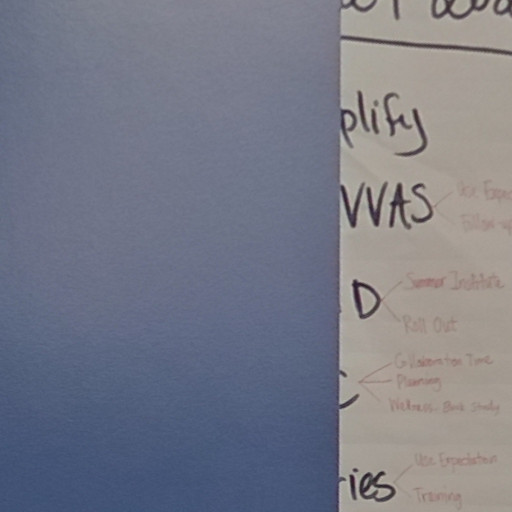 plify
VVAS
Use Expec
Follow-up
D
Summer Institute
Roll Out
Collaboration Time
Planning
Wellness- Book Study
ries
Use Expectation
Training